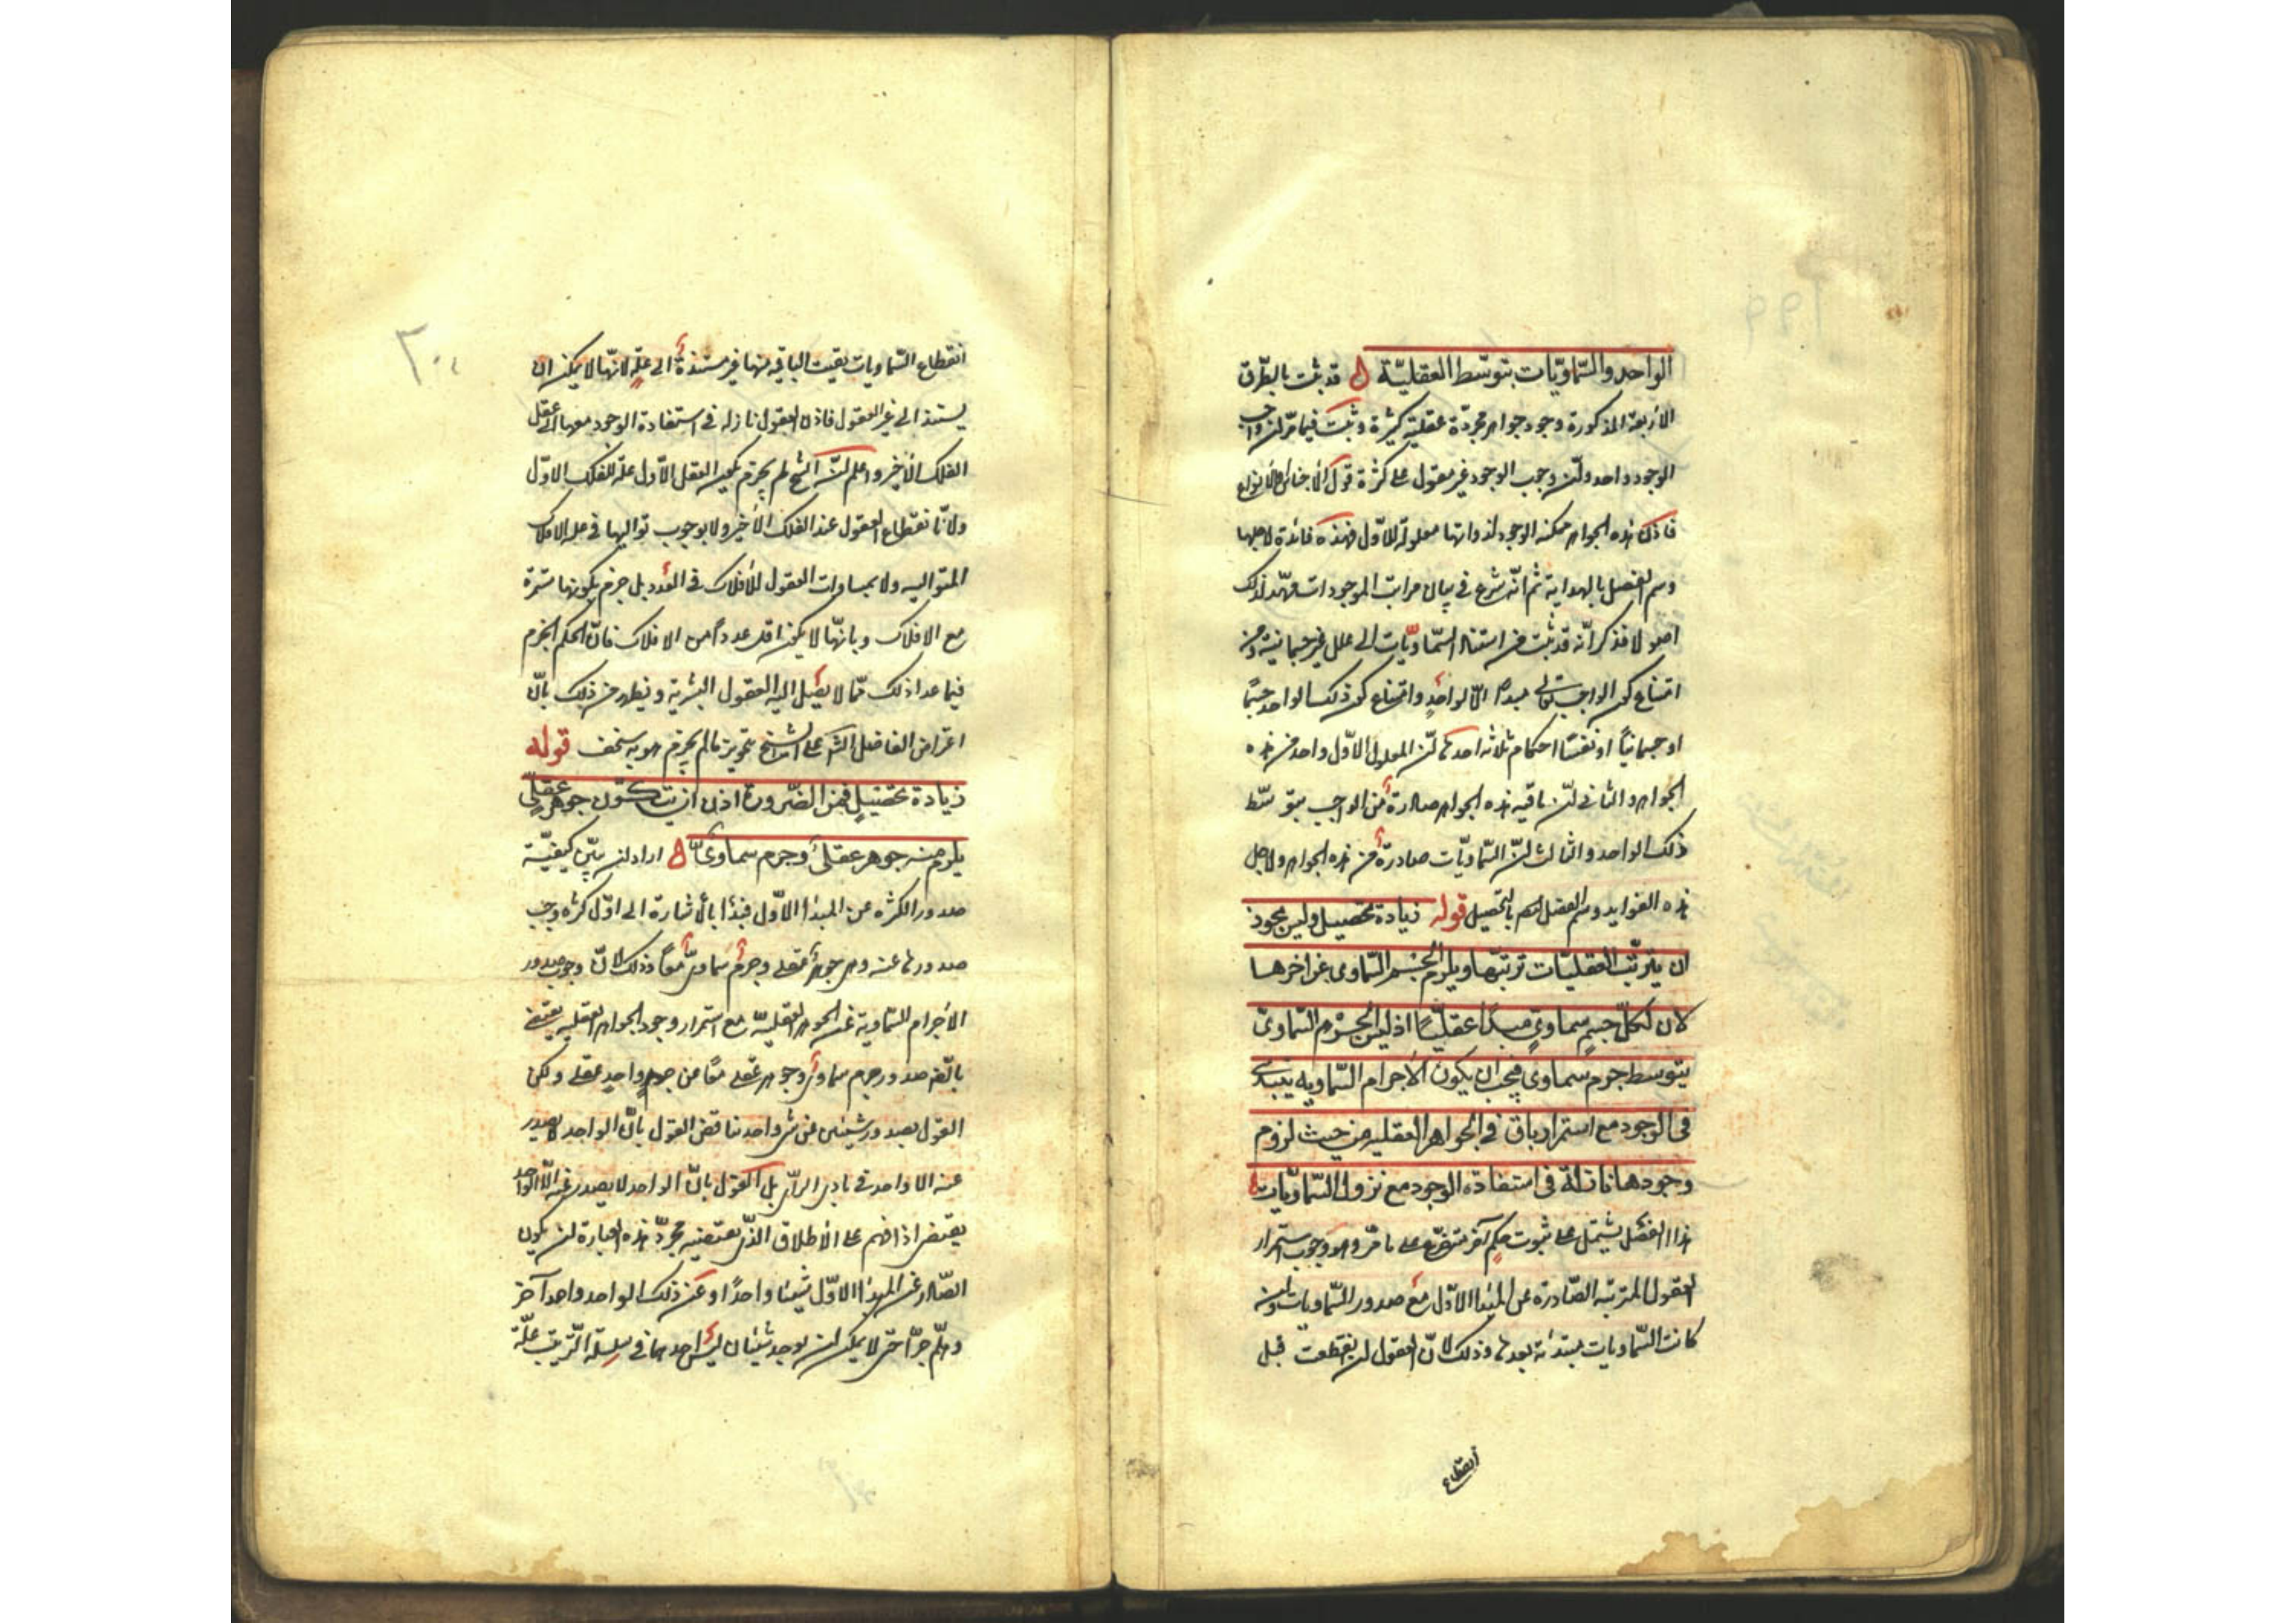 الواحد والسّماويّات بتوسّط العقليّة ه قد ثبت بالطّرق
الأربعة المذكورة وجود جواهر مجرّدة عقلية كثيرة وثبت فيما مرّ ان واجب
الوجود واحد وانّ وجوب الوجود غير مقول على كثرة قول الأجناس والأنواع
فاذن هذه الجواهر ممكنه الوجود لذواتها معلولة للأوّل فهذه فائدة لاجلها
وسم الفصل بالهداية ثمّ انّه شرع فى بيان مراتب الموجودات فمهّد لذلك
اصولا فذكر انّه قد ثبت من استناد السّماويّات الى علل غير جسمانية ومن
امتناع كون الواجب تعالى مبدءا الّا لواحدٍ وامتناع كون ذلك الواحد جسمًا
او جسمانيًّا او نفسًا احكام ثلاثه احدها انّ المعلول الاوّل واحد من هذه
الجواهر والثانى انّ باقيه هذه الجواهر صادرة من الواجب بتوسّط
ذلك الواحد والثالث انّ السّماويّات صادرة من هذه الجواهر ولاجل
هذه الفوايد وسم الفصل بالتحصيل قوله زيادة تحصيل وليس يجوز
ان يترتّب العقليّات ترتبها ويلزم الجسم السّماوى عن اخرها
لان لكلّ جسمٍ سماوىٍ مبدًا عقليًّا اذ ليس الجرم السّماوىّ
بتوسط جرم سماوى فيجب ان يكون الأجرام السّماويه يبتدى
فى الوجود مع استمرار باق فى الجواهر العقليه من حيث لزوم
وجودها نازلة فى استفادة الوجود مع نزول السّماويّات ه
هذا الفصل يشتمل على ثبوت حكمٍ آخر متفرّع على ما مرّ وهو وجوب استمرار
العقول المترتبه الصّادرة عن المبدا الاوّل مع صدور السّماويات وان
كانت السّماويات مبتدئه بعدها وذلك لانّ العقول لو انقطعت قبل
انقطاع
٢٠٠
انقطاع السّماويات بقيت الباقيه منها غير مستندة الى علّةٍ لانّها لا يمكن ان
يستند الى غير العقول فاذن العقول نازله فى استفادة الوجود معها الى عقل
الفلك الأخير واعلم انّ الشيخ لم يجزم بكون العقل الأوّل علّة للفلك الاوّل
ولا بانقطاع العقول عند الفلك الأخير ولا بوجوب تواليها فى علل الافلاك
المتواليه ولا بمساوات العقول للأفلاك فى العدد بل جزم بكونها مستمرّة
مع الافلاك وبانّها لا يكون اقلّ عدداً من الافلاك فانّ الحكم الجزم
فيما عدا ذلك ممّا لا يصل اليه العقول البشرية ويظهر من ذلك بانّ
اعتراض الفاضل الش على الشيخ بتجويز ما لم يجزم هو به سخف قوله
زيادة تحصيلٍ فمن الضّرورة اذن ان يكون جوهر عقلى
يلزم منه جوهر عقلىّ وجرم سماوىّ ه اراد ان يبيّن كيفيّة
صدور الكثرة عن المبدا الاوّل فبدأ بالاشارة الى اوّل كثرة وجب
صدورها عنه وهى جوهر عقلى وجرم سماوى معًا وذلك لانّ وجوب صدور
الأجرام السّماوية عن الجواهر العقليّة مع استمرار وجود الجواهر العقليه يقتضى
بالضّرورة صدور جرم سماوى وجوهر عقلى معًا من جوهر واحدٍ عقلى ولكن
القول بصدور شيئين عن شى واحد يناقض القول بانّ الواحد لا يصدر
عنه الّا واحد فى بادى الرّأى بل القول بانّ الواحد لا يصدر عنه الّا الواحد
يقتضى اذا فهم على الأطلاق الذّى يقتضيه مجرّد هذه العبارة ان يكون
الصّادر عن المبدا الاوّل شيئًا واحدًا وعن ذلك الواحد واحد آخر
وهلمّ جرًّا حتى لا يمكن ان يوجد شيئان ليس احدهما فى سلسلة الترتيب علّة